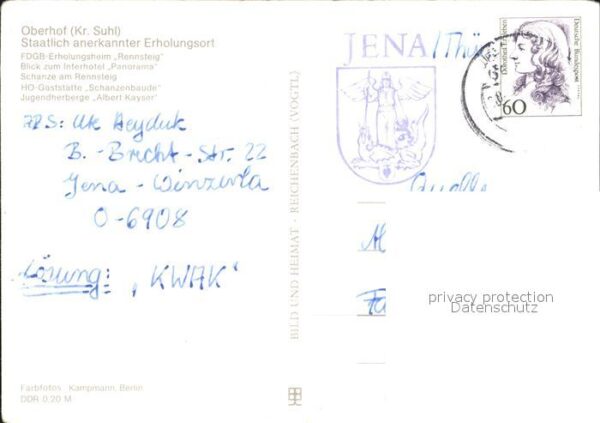 Oberhof (Kr. Suhl)
Staatlich anerkannter Erholungsort
FDGB-Erholungsheim „Rennsteig"
Blick zum Interhotel „Panorama"
Schanze am Rennsteig
HO-Gaststätte „Schanzenbaude"
Jugendherberge „Albert Kayser"
ABS: Ute Heyduk
B.-Brecht-Str. 22
Jena-Winzerla
O-6908
Lösung: „KWAK"
Farbfotos Kampmann, Berlin
DDR 0,20 M
BILD UND HEIMAT · REICHENBACH (VOGTL)
JENA/Thür
Deutsche Bundespost
60
privacy protection
Datenschutz